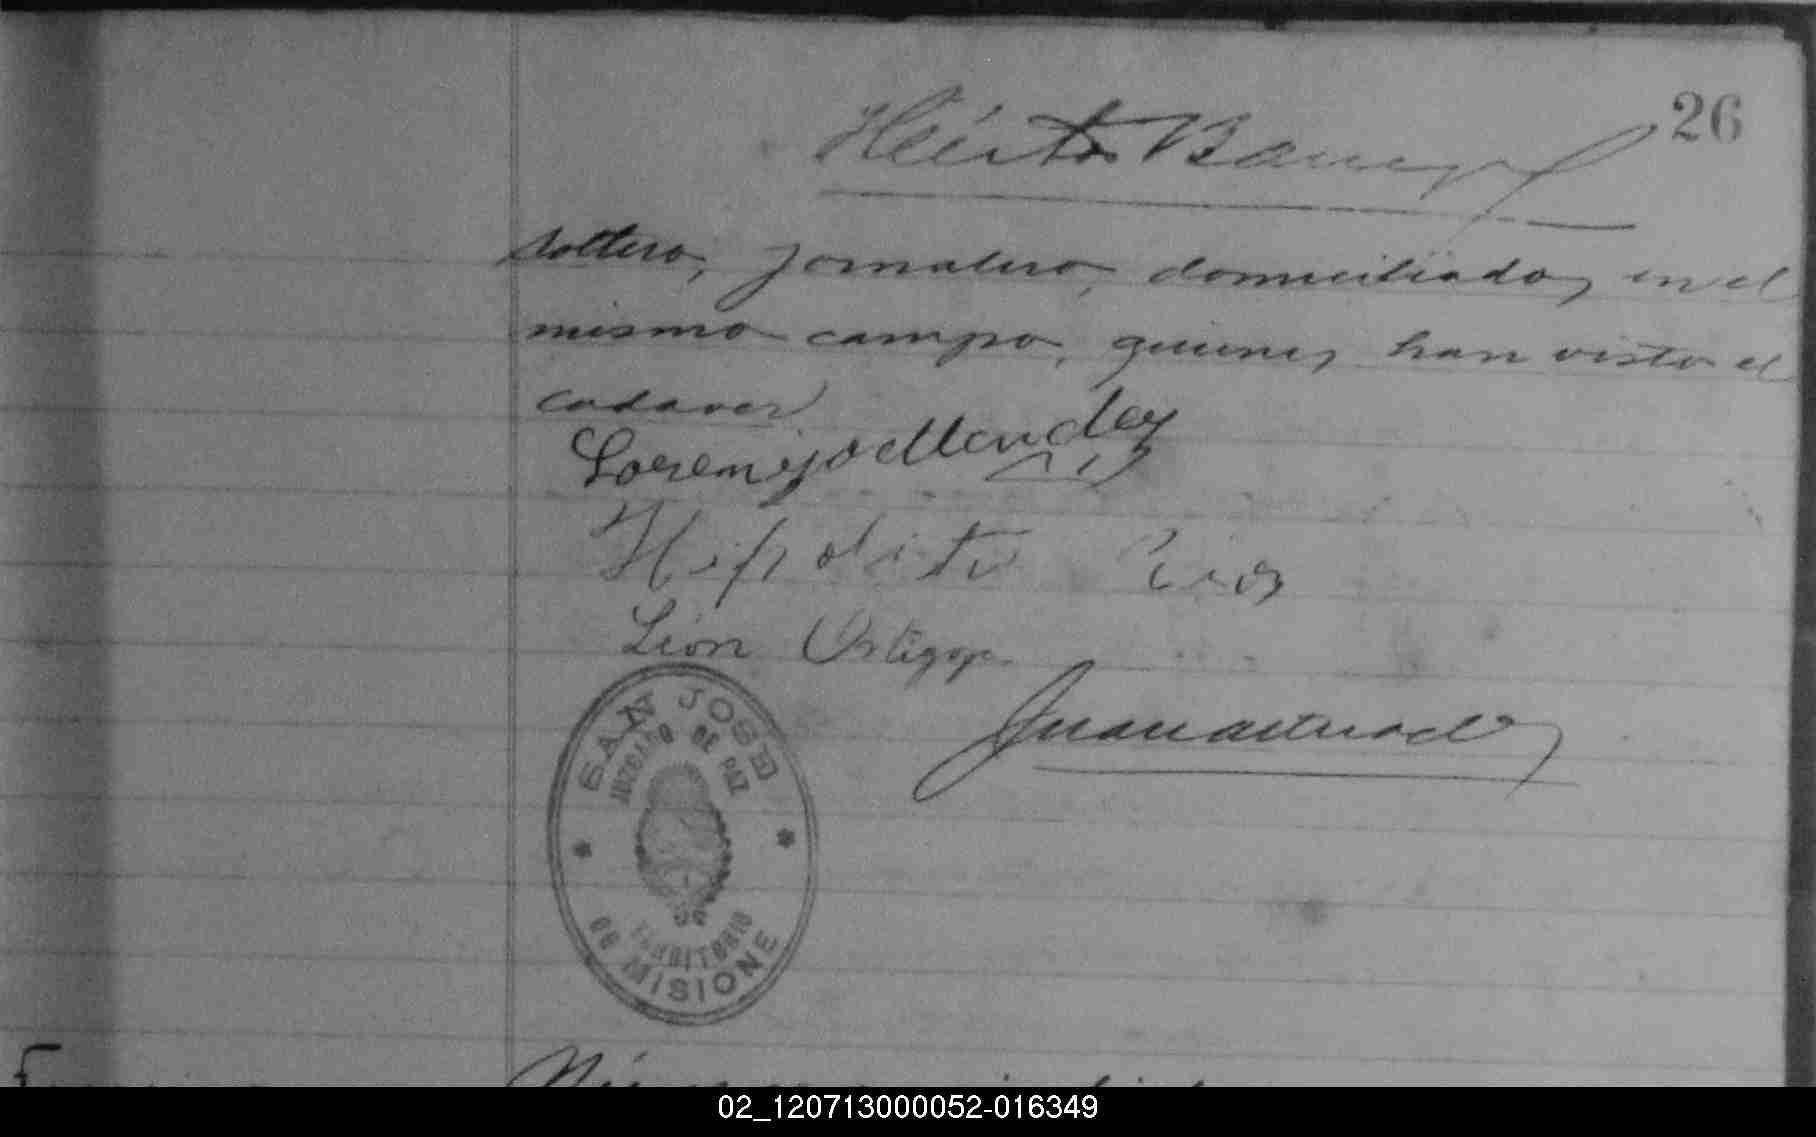 26
Héctor
soltero, jornalero, domiciliado, en el
mismo campo, quienes han visto el
cadaver
Loremzo Mendez
Hipolito Rios
León Ortigoza
SAN JOSE
JUZGADO DE PAZ
TERRITORIO
DE MISIONE
02_120713000052-016349